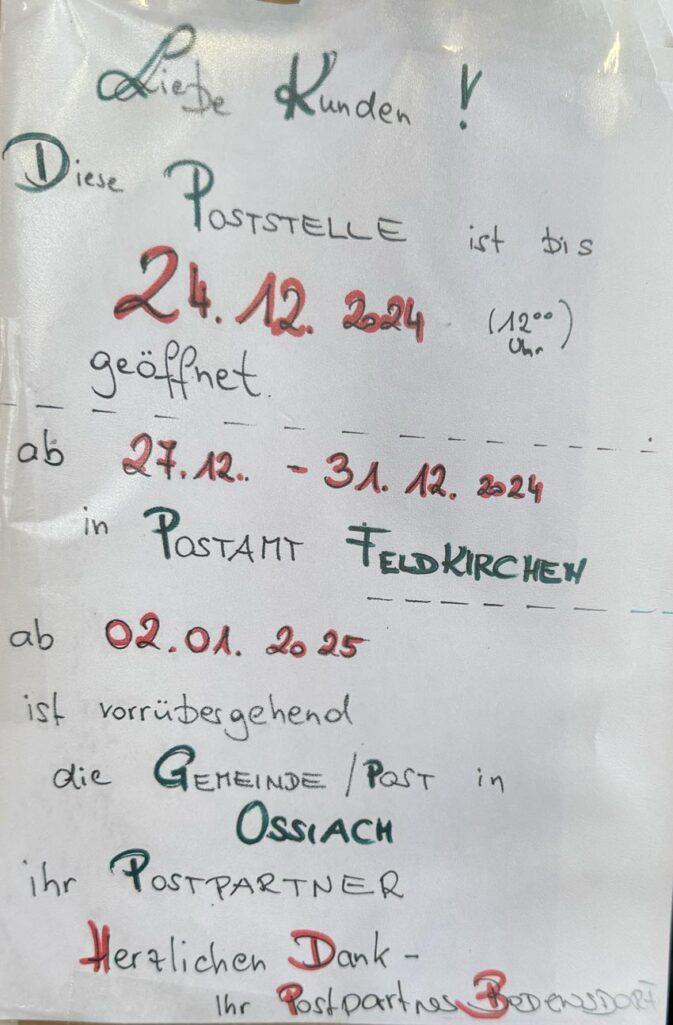 Liebe Kunden !
Diese POSTSTELLE ist bis
24.12. 2024 (12⁰⁰ Uhr)
geöffnet.
ab 27.12. - 31.12. 2024
in POSTAMT FELDKIRCHEN
ab 02.01. 2025
ist vorrübergehend
die GEMEINDE / POST in
OSSIACH
ihr POSTPARTNER
Herzlichen Dank -
Ihr Postpartner BODENSDORF